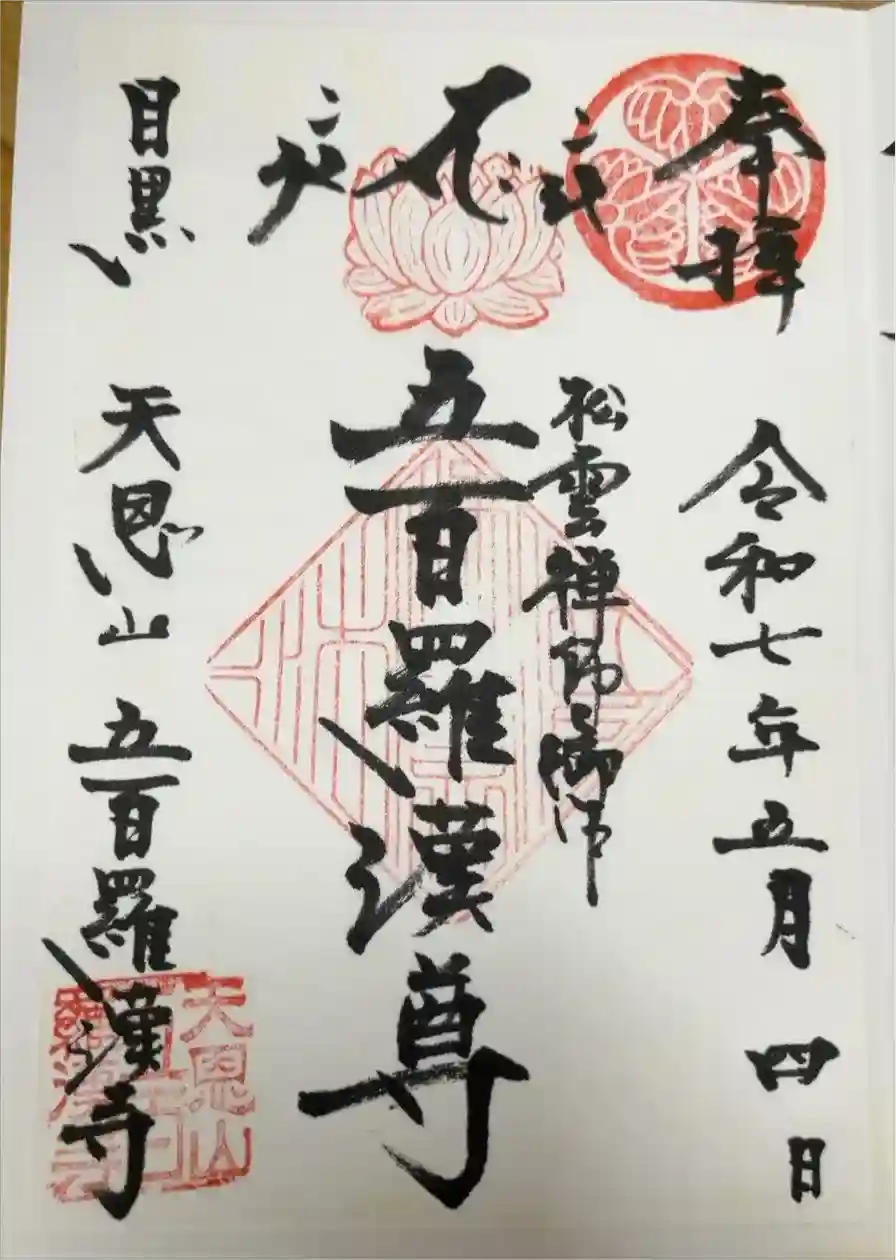 奉拝　令和七年五月四日
松雲禅師御作
五百羅漢尊
目黒　天恩山　五百羅漢寺
天恩山
五百
羅漢寺